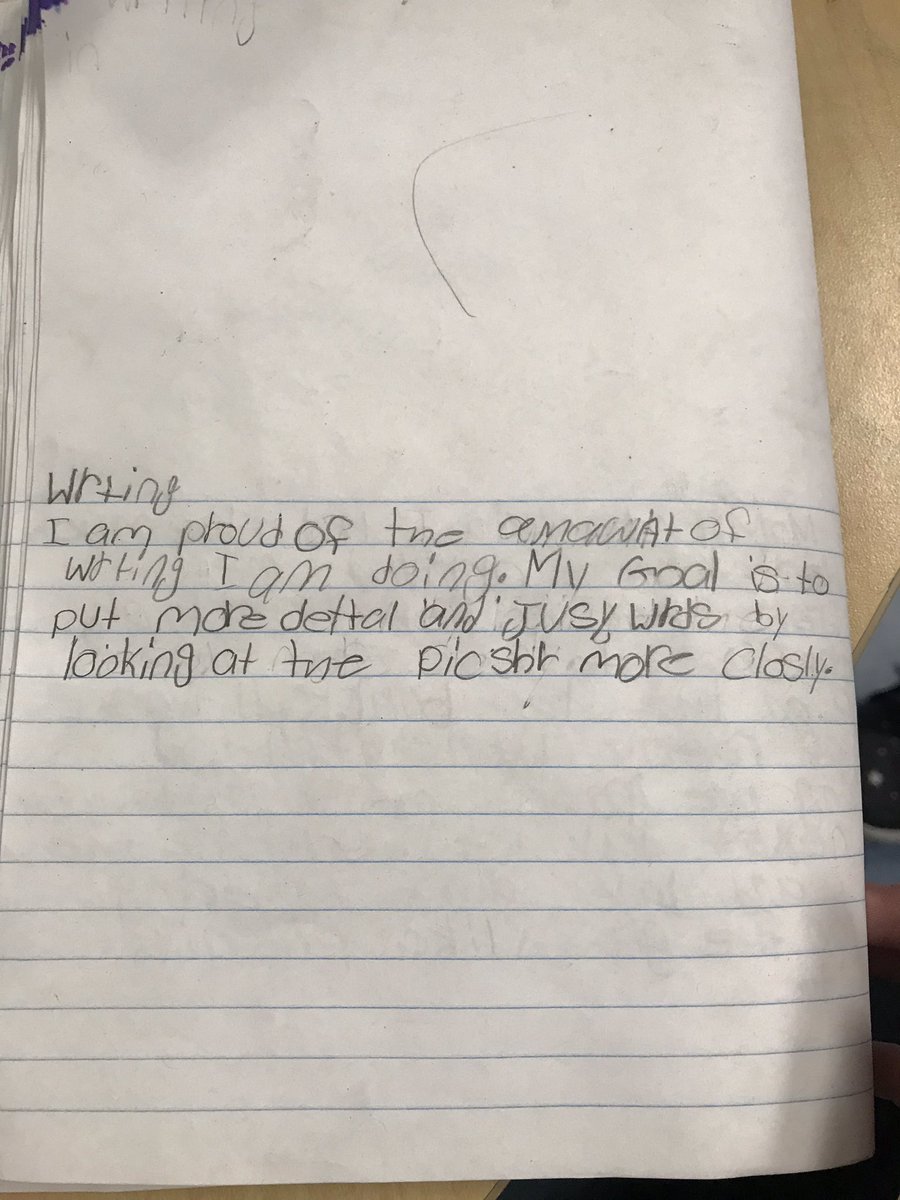 writing
in
Wrting
I am proud of the amawat of
wrting I am doing. My Goal is to
put more dettal and JUSY wrds by
looking at the picshr more closly.